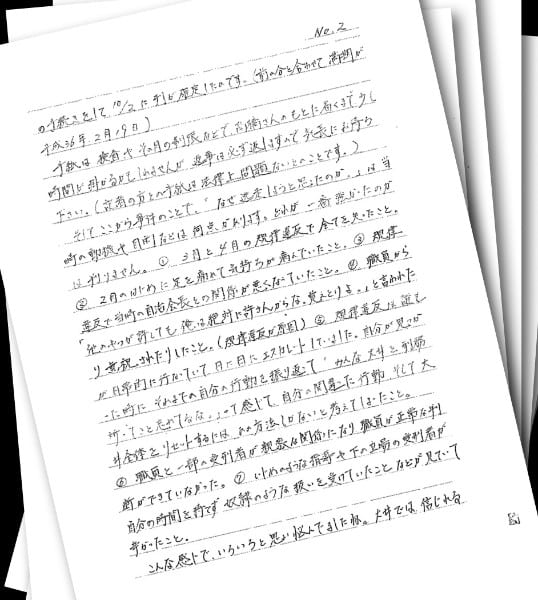 No. 2
の手続きをして10/2に刑が確定したのです。(前の分と合わせて満期が
平成36年2月19日)
手紙は検査やその月の制限などで、記者さんのもとに届くまで少し
時間が掛かるかもしれませんが、返事は必ず返しますので気長にお待ち
下さい。(記者の方との手紙は法律上問題ないとのことです。)
そしてここから事件のことで、「なぜ逃走しようと思ったのか。」は当
時の動機や目的などは何点かあります。どれが一番強かったのか
は判りません。① 3月と4月の規律違反で全てを失ったこと。
② 2月のはじめに足を痛めて気持ちが病んでいたこと。③ 規律
違反で当時の自治会長との関係が悪くなっていたこと。④ 職員から
「他のやつが許しても俺は絶対に許さんからな。覚えとけよ。」と言われた
り無視されたりしたこと。(規律違反が原因) ⑤ 規律違反は誰も
が日常的に行なっていて日に日にエスカレートしていました。自分が見つか
った時にそれまでの自分の行動を振り返って「みんな大井を刑務
所ってこと忘れてるな。」って感じて、自分の間違った行動、そして大
井全体をリセットするには、この方法しかないと考えてしまったこと。
⑥ 職員と一部の受刑者が親密な関係になり職員が正常な判
断ができていなかった。⑦ いじめのような指導や下の立場の受刑者が
自分の時間を持てず奴隷のような扱いを受けていたことなどが見ていて
辛かったこと。
こんな感じで、いろいろと思い悩んでましたね。大井では、信じれる